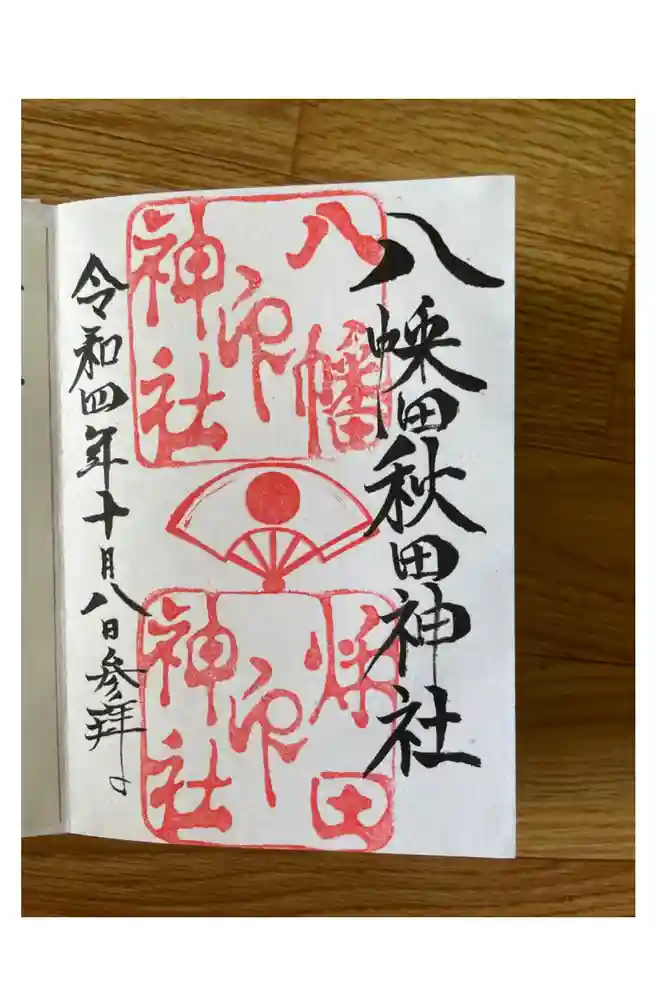 八幡秋田神社
八幡
印
神社
秋田
印
神社
令和四年十月八日参拝